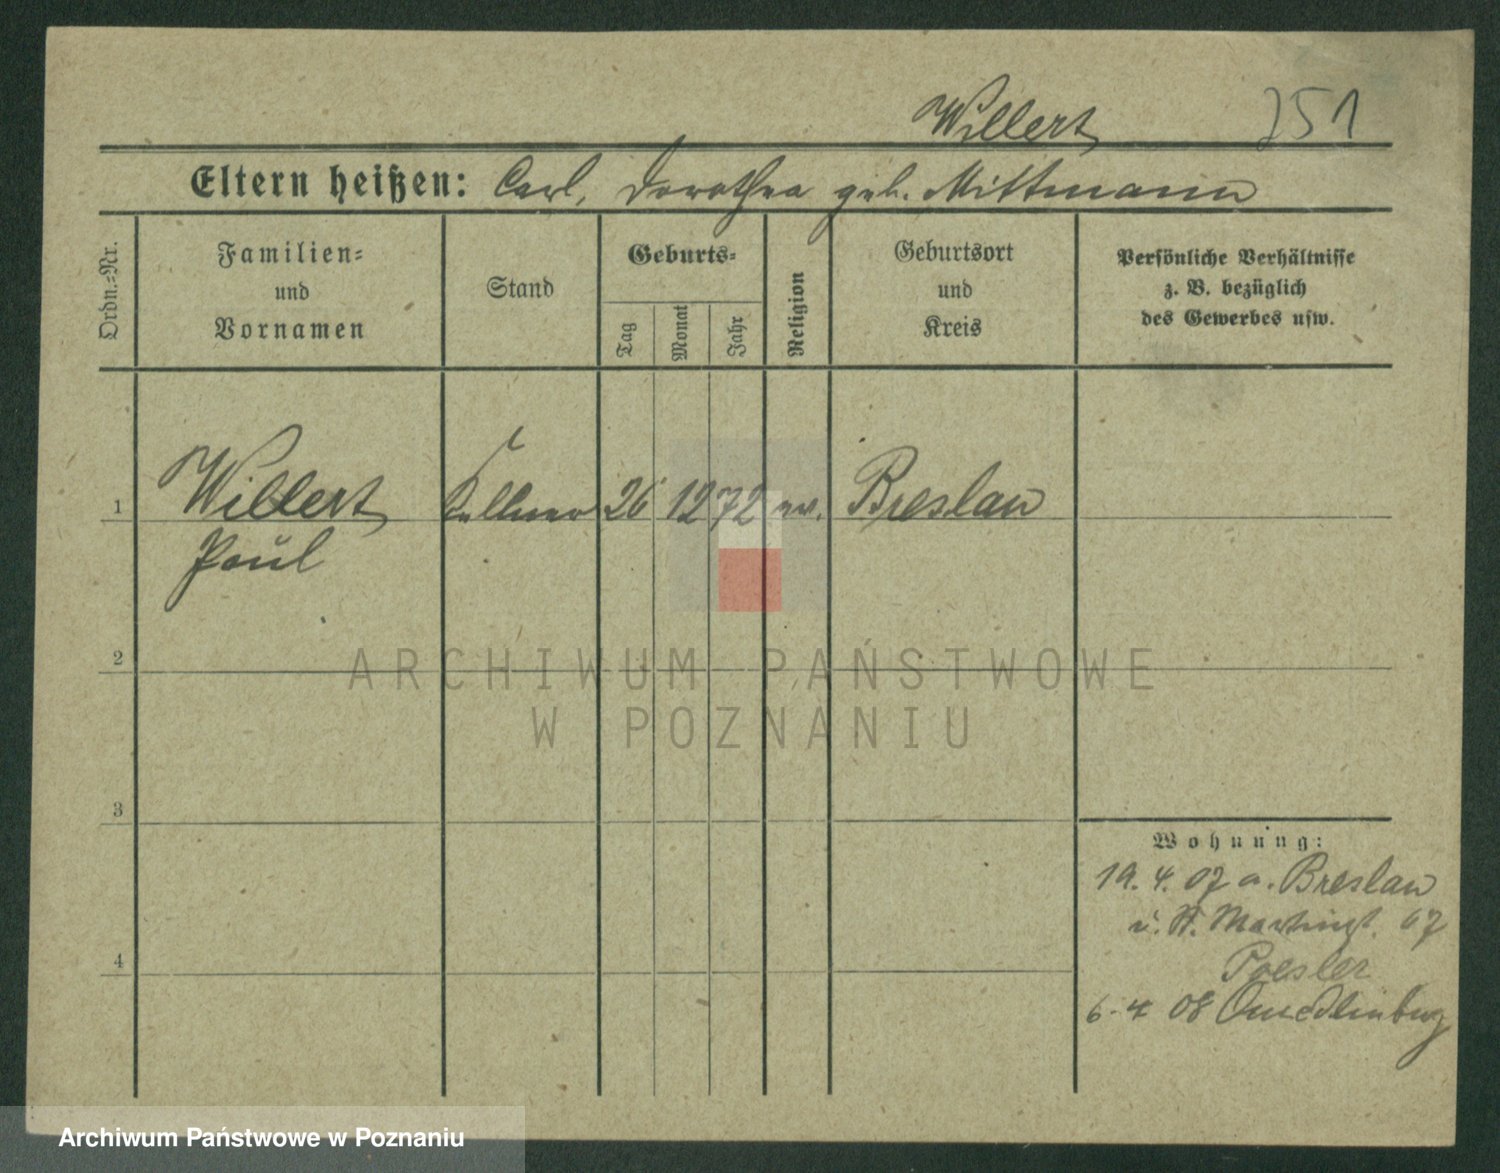 Willert 251
Eltern heißen: Carl, Dorothea geb. Mittmann
Ordn.=Nr.
Familien=
und
Vornamen
Stand
Geburts=
Tag
Monat
Jahr
Religion
Geburtsort
und
Kreis
Persönliche Verhältnisse
z. B. bezüglich
des Gewerbes usw.
1 Willert Kellner 26 12 72 ev. Breslau
Paul
2
ARCHIWUM PAŃSTWOWE
W POZNANIU
3
Wohnung:
19. 4. 07 a. Breslau
67
Poesler
4
6-4 08 Quedlinburg
Archiwum Państwowe w Poznaniu